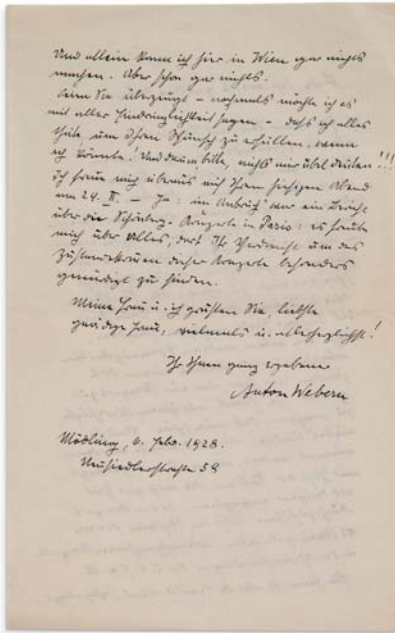 Und allein kann ich hier in Wien gar nichts
machen. Aber schon gar nichts.
Seien Sie überzeugt – nochmals möchte ich es
mit aller Eindringlichkeit sagen – daß ich alles
thäte um Ihren Wunsch zu erfüllen, wenn
ich könnte! Und darum bitte, nichts mir übel deuten!!!
Ich freue mich überaus auf Ihren hiesigen Abend
am 24. II. – Ja: im Anbruch war ein Bericht
über die Schönberg-Konzerte in Paris: es freute
mich über Alles, dort Ihr Verdienst um das
Zustandekommen dieser Konzerte besonders
gewürdigt zu finden.
Meine Frau u. ich grüßen Sie, liebste
gnädige Frau, vielmals u. allerherzlichst!
Ihr Ihnen ganz ergebener
Anton Webern
Mödling, 6. Febr. 1928.
Neusiedlerstraße 58